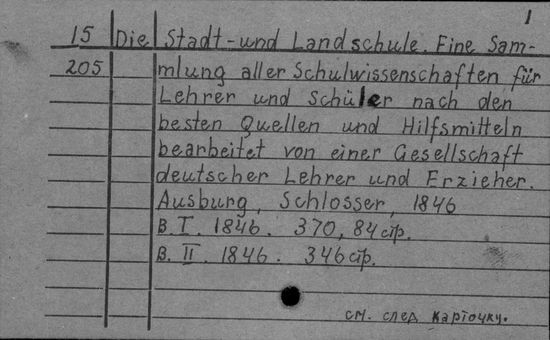 1
15 Die Stadt-und Landschule. Eine Sam-
205 mlung aller Schulwissenschaften für
Lehrer und Schüler nach den
besten Quellen und Hilfsmitteln
bearbeitet von einer Gesellschaft
deutscher Lehrer und Erzieher.
Ausburg, Schlosser, 1846
B. I. 1846. 370, 84 стр.
B. II. 1846. 346 стр.
см. след карточку.